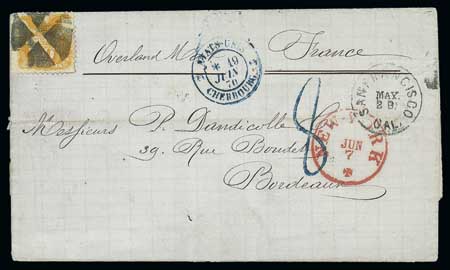 Overland Mail
France
ETATS-UNIS
* 19
JUIN
70
CHERBOURG
SAN FRANCISCO
MAY.
28
CAL.
8
NEW-YORK
JUN
7
Messieurs P. Dandicolle
39, Rue Boudet
Bordeaux